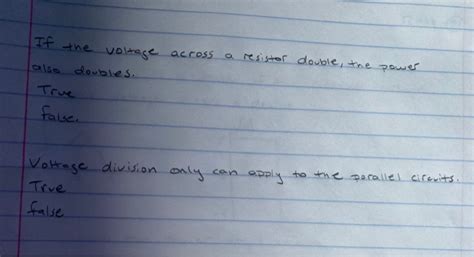 If the voltage across a resistor double, the power
also doubles.
True
false.
Voltage division only can apply to the parallel circuits.
True
false